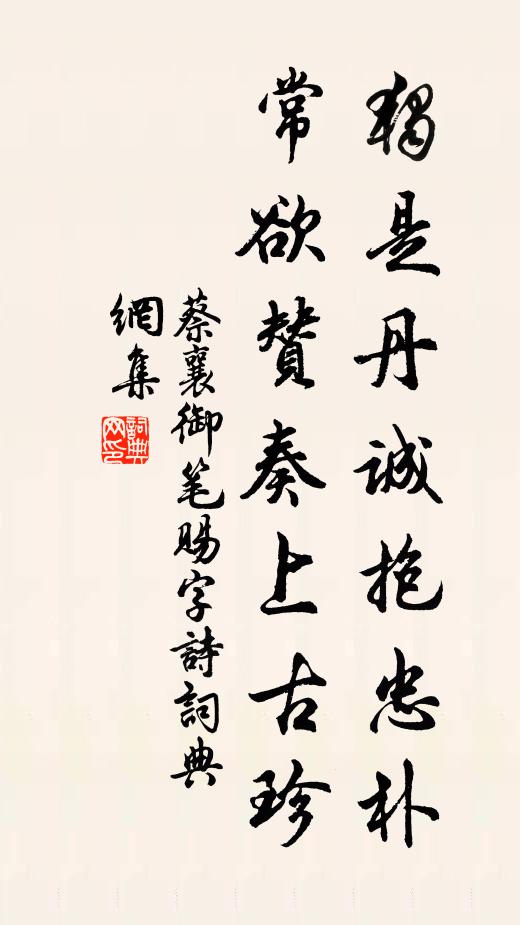 獨是丹誠抱忠朴
常欲贊奏上古珍
蔡襄御笔賜字詩詞典
網集
詞典
网印